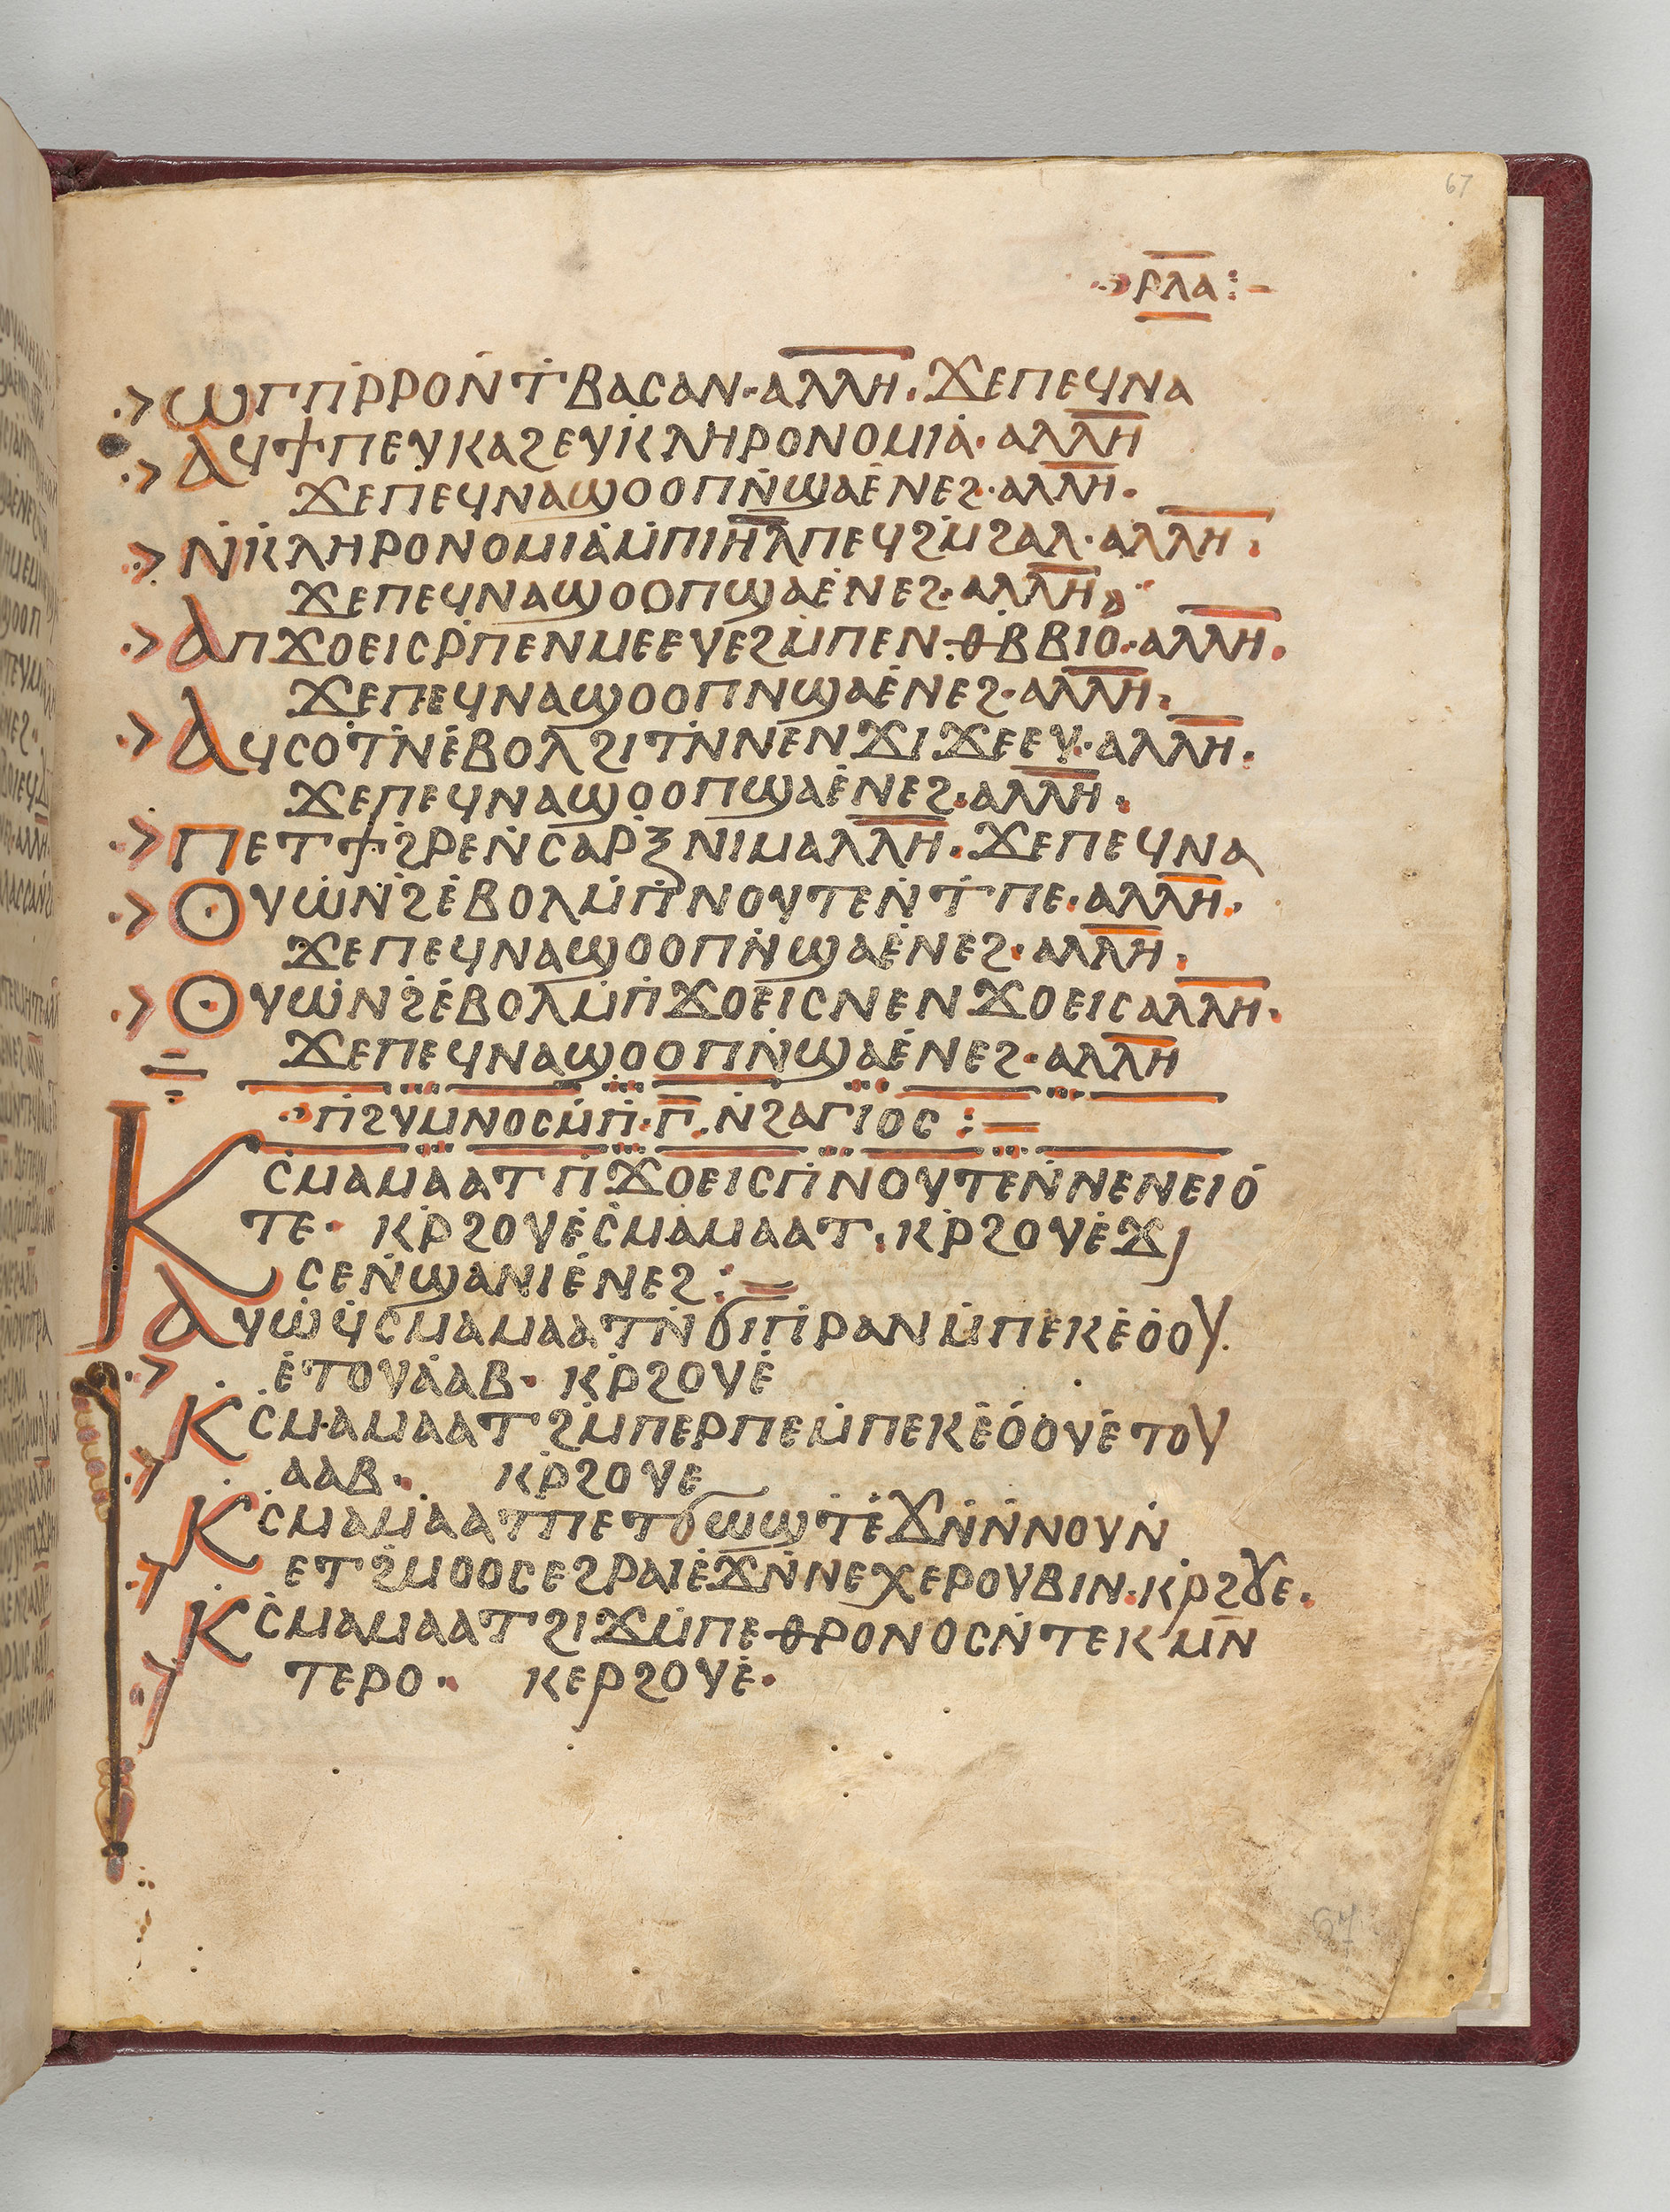 67
ⲣⲗⲁ
ⲱⲅ ⲡⲣ̇ⲣⲟⲛ̇ⲧ̇ⲃⲁⲥⲁⲛ· ⲁⲗⲗⲏ. ϫⲉⲡⲉϥⲛⲁ
ⲁϥϯⲡⲉⲩⲕⲁϩⲉⲩⲕ̇ⲗⲏⲣⲟⲛⲟⲙⲓⲁ̇· ⲁⲗⲗⲏ
ϫⲉⲡⲉϥⲛⲁϣⲟⲟⲡⲛ̇ϣⲁⲉ̇ⲛⲉϩ· ⲁⲗⲗⲏ.
ⲛ̇ⲕ̇ⲗⲏⲣⲟⲛⲟⲙⲓⲁ̇ⲙ̇ⲡⲓⲏ̅ⲗ̅ⲡⲉϥϩⲙ̇ϩⲁⲗ· ⲁⲗⲗⲏ.
ϫⲉⲡⲉϥⲛⲁϣⲟⲟⲡϣⲁⲉ̇ⲛⲉϩ· ⲁⲗⲗⲏ
ⲁⲡϫⲟⲉⲓⲥⲣ̇ⲡⲉⲛⲙⲉⲉⲩⲉϩⲙ̇ⲡⲉⲛ·ⲑⲃ̇ⲃⲓⲟ̇· ⲁⲗⲗⲏ.
ϫⲉⲡⲉϥⲛⲁϣⲟⲟⲡⲛϣⲁⲉ̇ⲛⲉϩ· ⲁⲗⲗⲏ.
ⲁϥⲥⲟⲧ̇ⲛ̇ⲉ̇ⲃⲟⲗϩⲓⲧⲛ̇ⲛⲉⲛϫⲓϫⲉⲉⲩ· ⲁⲗⲗⲏ.
ϫⲉⲡⲉϥⲛⲁϣⲟⲟⲡϣⲁⲉ̇ⲛⲉϩ· ⲁⲗⲗⲏ.
ⲡⲉⲧϯϩⲣⲉⲛ̇ⲥⲁⲣⲝⲛⲓⲙⲁⲗⲗⲏ. ϫⲉⲡⲉϥⲛⲁ
ⲟⲩⲱ̇ⲛ̇ϩ̇ⲉ̇ⲃⲟⲗⲙ̇ⲡ̇ⲛⲟⲩⲧⲉⲛ̇ⲧ̇ⲡⲉ· ⲁⲗⲗⲏ.
ϫⲉⲡⲉϥⲛⲁϣⲟⲟⲡⲛ̇ϣⲁⲉ̇ⲛⲉϩ· ⲁⲗⲗⲏ.
ⲟⲩⲱ̇ⲛϩ̇ⲉ̇ⲃⲟⲗⲙ̇ⲡ̇ϫⲟⲉⲓⲥⲛⲉⲛϫⲟⲉⲓⲥⲁⲗⲗⲏ.
ϫⲉⲡⲉϥⲛⲁϣⲟⲟⲡⲛ̇ϣⲁⲉ̇ⲛⲉϩ· ⲁⲗⲗⲏ
ⲡ̇ϩⲩⲙⲛⲟⲥⲙ̇ⲡ̇·ⲅ̅.ⲛ̇ϩⲁⲅⲓⲟⲥ :—
ⲕⲥ̇ⲙⲁⲙⲁⲁⲧⲡ̇ϫⲟⲉⲓⲥⲡ̇ⲛⲟⲩⲧⲉⲛ̇ⲛⲉⲛⲉⲓⲟ̇
ⲧⲉ· ⲕⲣ̇ϩⲟⲩⲉ̇ⲥ̇ⲙⲁⲙⲁⲁⲧ. ⲕⲣ̇ϩⲟⲩⲉ̇ϫⲓ
ⲥⲉⲛ̇ϣⲁⲛⲓⲉ̇ⲛⲉϩ :=
ⲁⲩⲱ̇ϥ̇ⲥⲙⲁⲙⲁⲁⲧⲛ̇ϭⲓⲡ̇ⲣⲁⲛⲙ̇ⲡⲉⲕⲉ̇ⲟ̇ⲟⲩ.
ⲉ̇ⲧⲟⲩⲁ̇ⲁⲃ· ⲕⲣ̇ϩⲟⲩⲉ̇
ⲕⲥ̇ⲙⲁⲙⲁⲁⲧϩⲙ̇ⲡⲉⲣⲡⲉⲙ̇ⲡⲉⲕⲉ̇ⲟ̇ⲟⲩⲉ̇ⲧⲟⲩ
ⲁⲁⲃ· ⲕⲣ̇ϩⲟⲩⲉ
ⲕⲥ̇ⲙⲁⲙⲁⲁⲧⲡⲉⲧϭⲱϣⲧ̇ⲉ̇ϫⲛ̇ⲛ̇ⲛⲟⲩⲛ̇
ⲉⲧϩ̇ⲙⲟⲟⲥⲉϩⲣⲁⲓⲉ̇ϫⲛ̇ⲛⲉⲭⲉⲣⲟⲩⲃⲓⲛ·ⲕⲣ̇ϩⲟⲩⲉ.
ⲕⲥ̇ⲙⲁⲙⲁⲁⲧϩⲓϫⲙ̇ⲡⲉⲑⲣⲟⲛⲟⲥⲛ̇ⲧⲉⲕⲙⲛ̅
ⲧⲉⲣⲟ· ⲕⲉⲣϩⲟⲩⲉ̇·
67